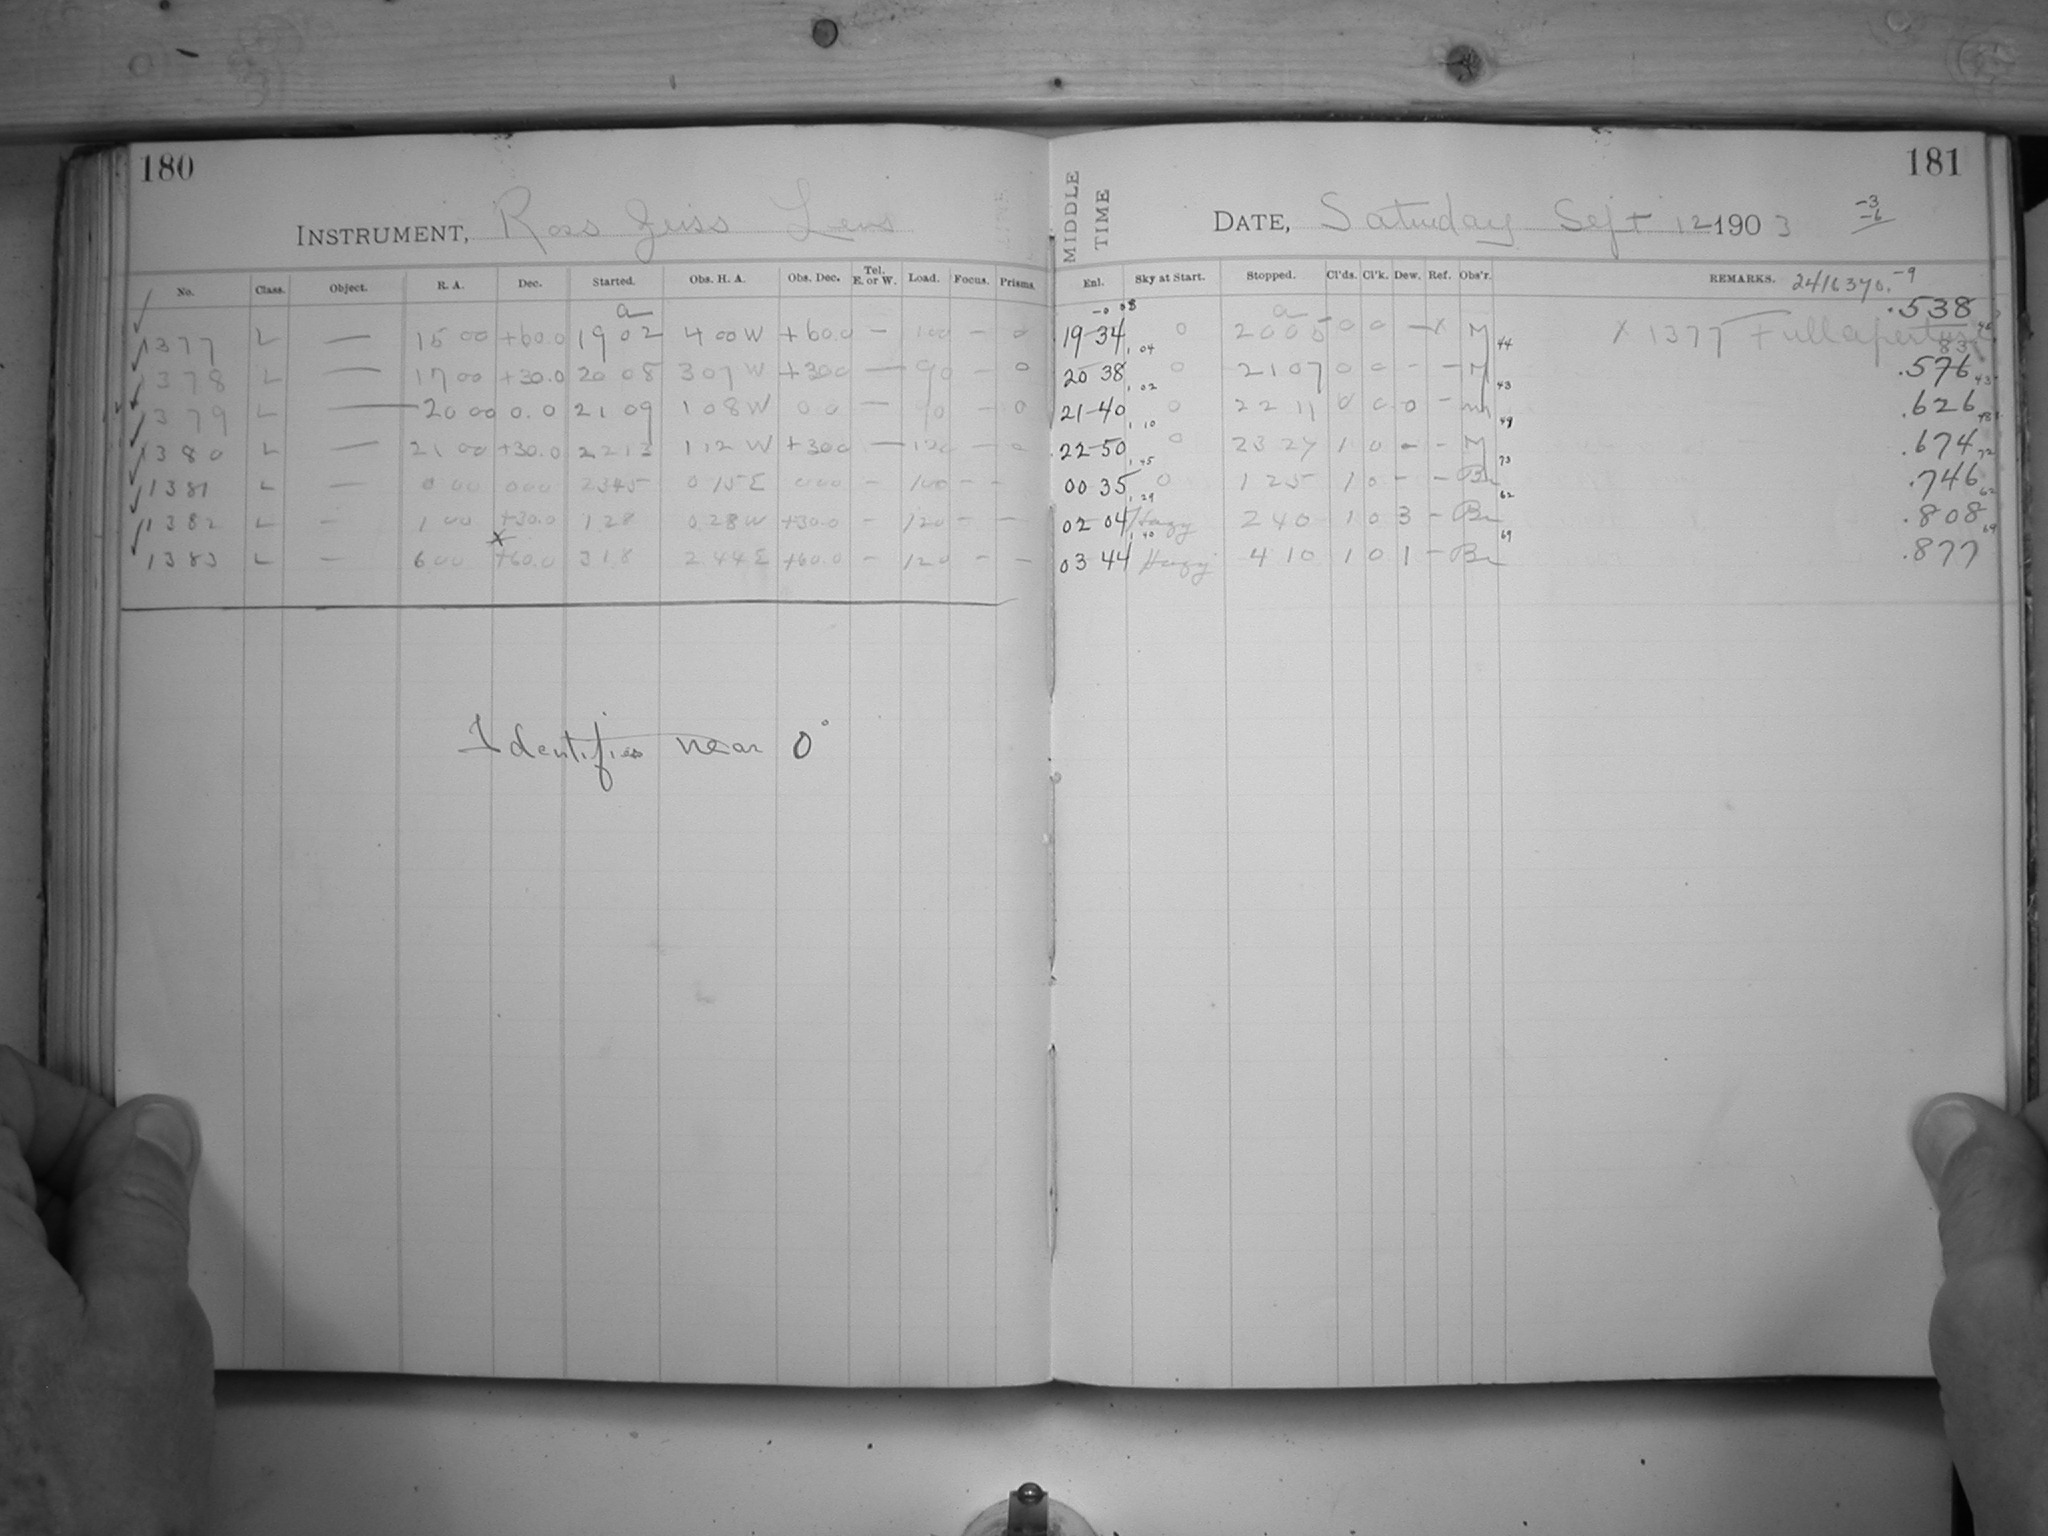 180
INSTRUMENT, Ross Zeiss Lens
No. Class. Object. R. A. Dec. Started. Obs. H. A. Obs. Dec. Tel. E. or W. Load. Focus. Prisms.
a
1377 L — 15 00 +60.0 19 02 4 00 W +60.0 — 100 — 0
1378 L — 17 00 +30.0 20 08 3 07 W +30.0 — 90 — 0
1379 L — 20 00 0.0 21 09 1 08 W 0 0 — 90 — 0
1380 L — 21 00 +30.0 22 13 1 12 W +30.0 — 120 — 0
1381 L — 0 00 0 0 0 23 45 0 15 E 0 0 0 — 100 — —
1382 L — 1 00 +30.0 1 28 0 28 W +30.0 — 120 — —
x
1383 L — 6 00 +60.0 3 18 2 44 E +60.0 — 120 — —
Identifies near 0°
181
MIDDLE TIME
DATE, Saturday Sept 12 1903
-3
-6
-9
Enl. Sky at Start. Stopped. Cl'ds. Cl'k. Dew. Ref. Obs'r. REMARKS. 2416370.
a
19-34 0 20 05 0 0 — x M x 1377 Full aperture .538
1, 04 44
20 38 0 21 07 0 0 - - M .576
1, 02 43
21-40 0 22 11 0 0 0 - M .626
1 10 49
22-50 0 23 27 1 0 - - M .674 72
1, 45 73
00 35 0 1 25 1 0 - - Br .746 62
1, 29 62
02 04 Hazy 2 40 1 0 3 - Br .808 69
1, 40 69
03 44 Hazy 4 10 1 0 1 - Br .877